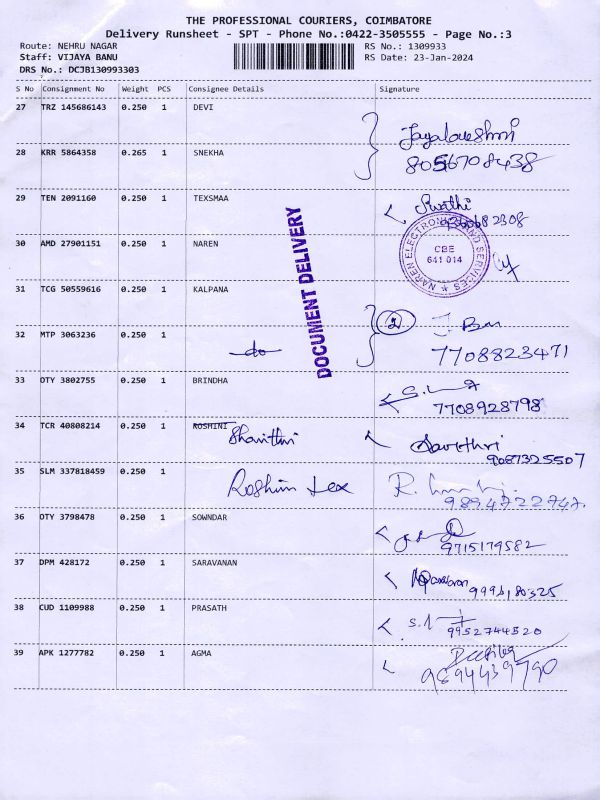 THE PROFESSIONAL COURIERS, COIMBATORE
Delivery Runsheet - SPT - Phone No.:0422-3505555 - Page No.:3
Route: NEHRU NAGAR
RS No.: 1309933
Staff: VIJAYA BANU
RS Date: 23-Jan-2024
DRS No.: DCJB130993303
S No Consignment No Weight PCS Consignee Details Signature
27 TRZ 145686143 0.250 1 DEVI
28 KRR 5864358 0.265 1 SNEKHA
8056708438
29 TEN 2091160 0.250 1 TEXSMAA Swathi
30 AMD 27901151 0.250 1 NAREN
NAREN ELECTRONICS AND SERVICES
CBE
641 014
DOCUMENT DELIVERY
31 TCG 50559616 0.250 1 KALPANA
32 MTP 3063236 0.250 1 do 2
7708823471
33 OTY 3802755 0.250 1 BRINDHA
7708928798
34 TCR 40808214 0.250 1 ROSHINI
Shavithri Savithri
9087325507
35 SLM 337818459 0.250 1 Roshini Lex
9894722747
36 OTY 3798478 0.250 1 SOWNDAR
9715179582
37 DPM 428172 0.250 1 SARAVANAN
38 CUD 1109988 0.250 1 PRASATH
9952744520
39 APK 1277782 0.250 1 AGMA
9894439790